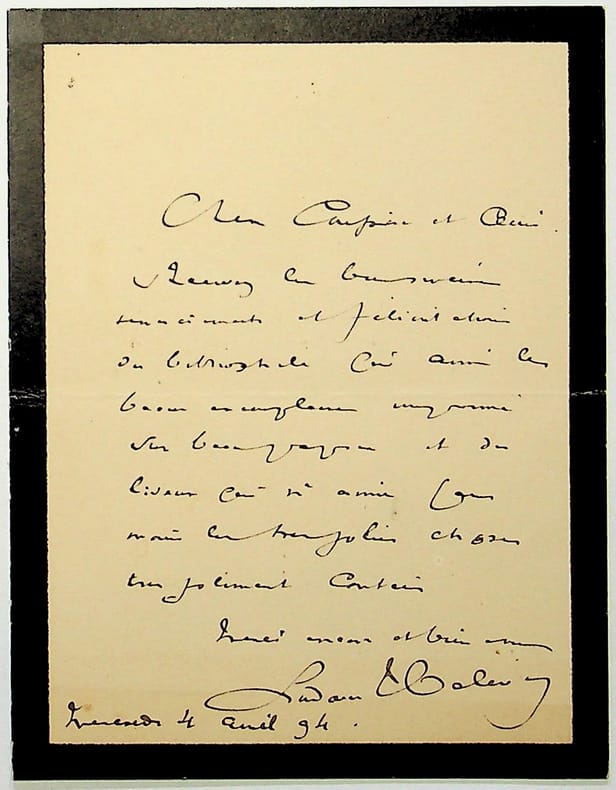 Cher Confrère et Ami.
Recevez les bien sincères
remerciements et félicitations
du bibliophile qui aime les
beaux exemplaires imprimés
sur beau papier et du
liseur qui n'aime pas
moins les très jolies choses
très joliment contées
Merci encore et bien à vous
Ludovic Halévy
Mercredi 4 avril 94.